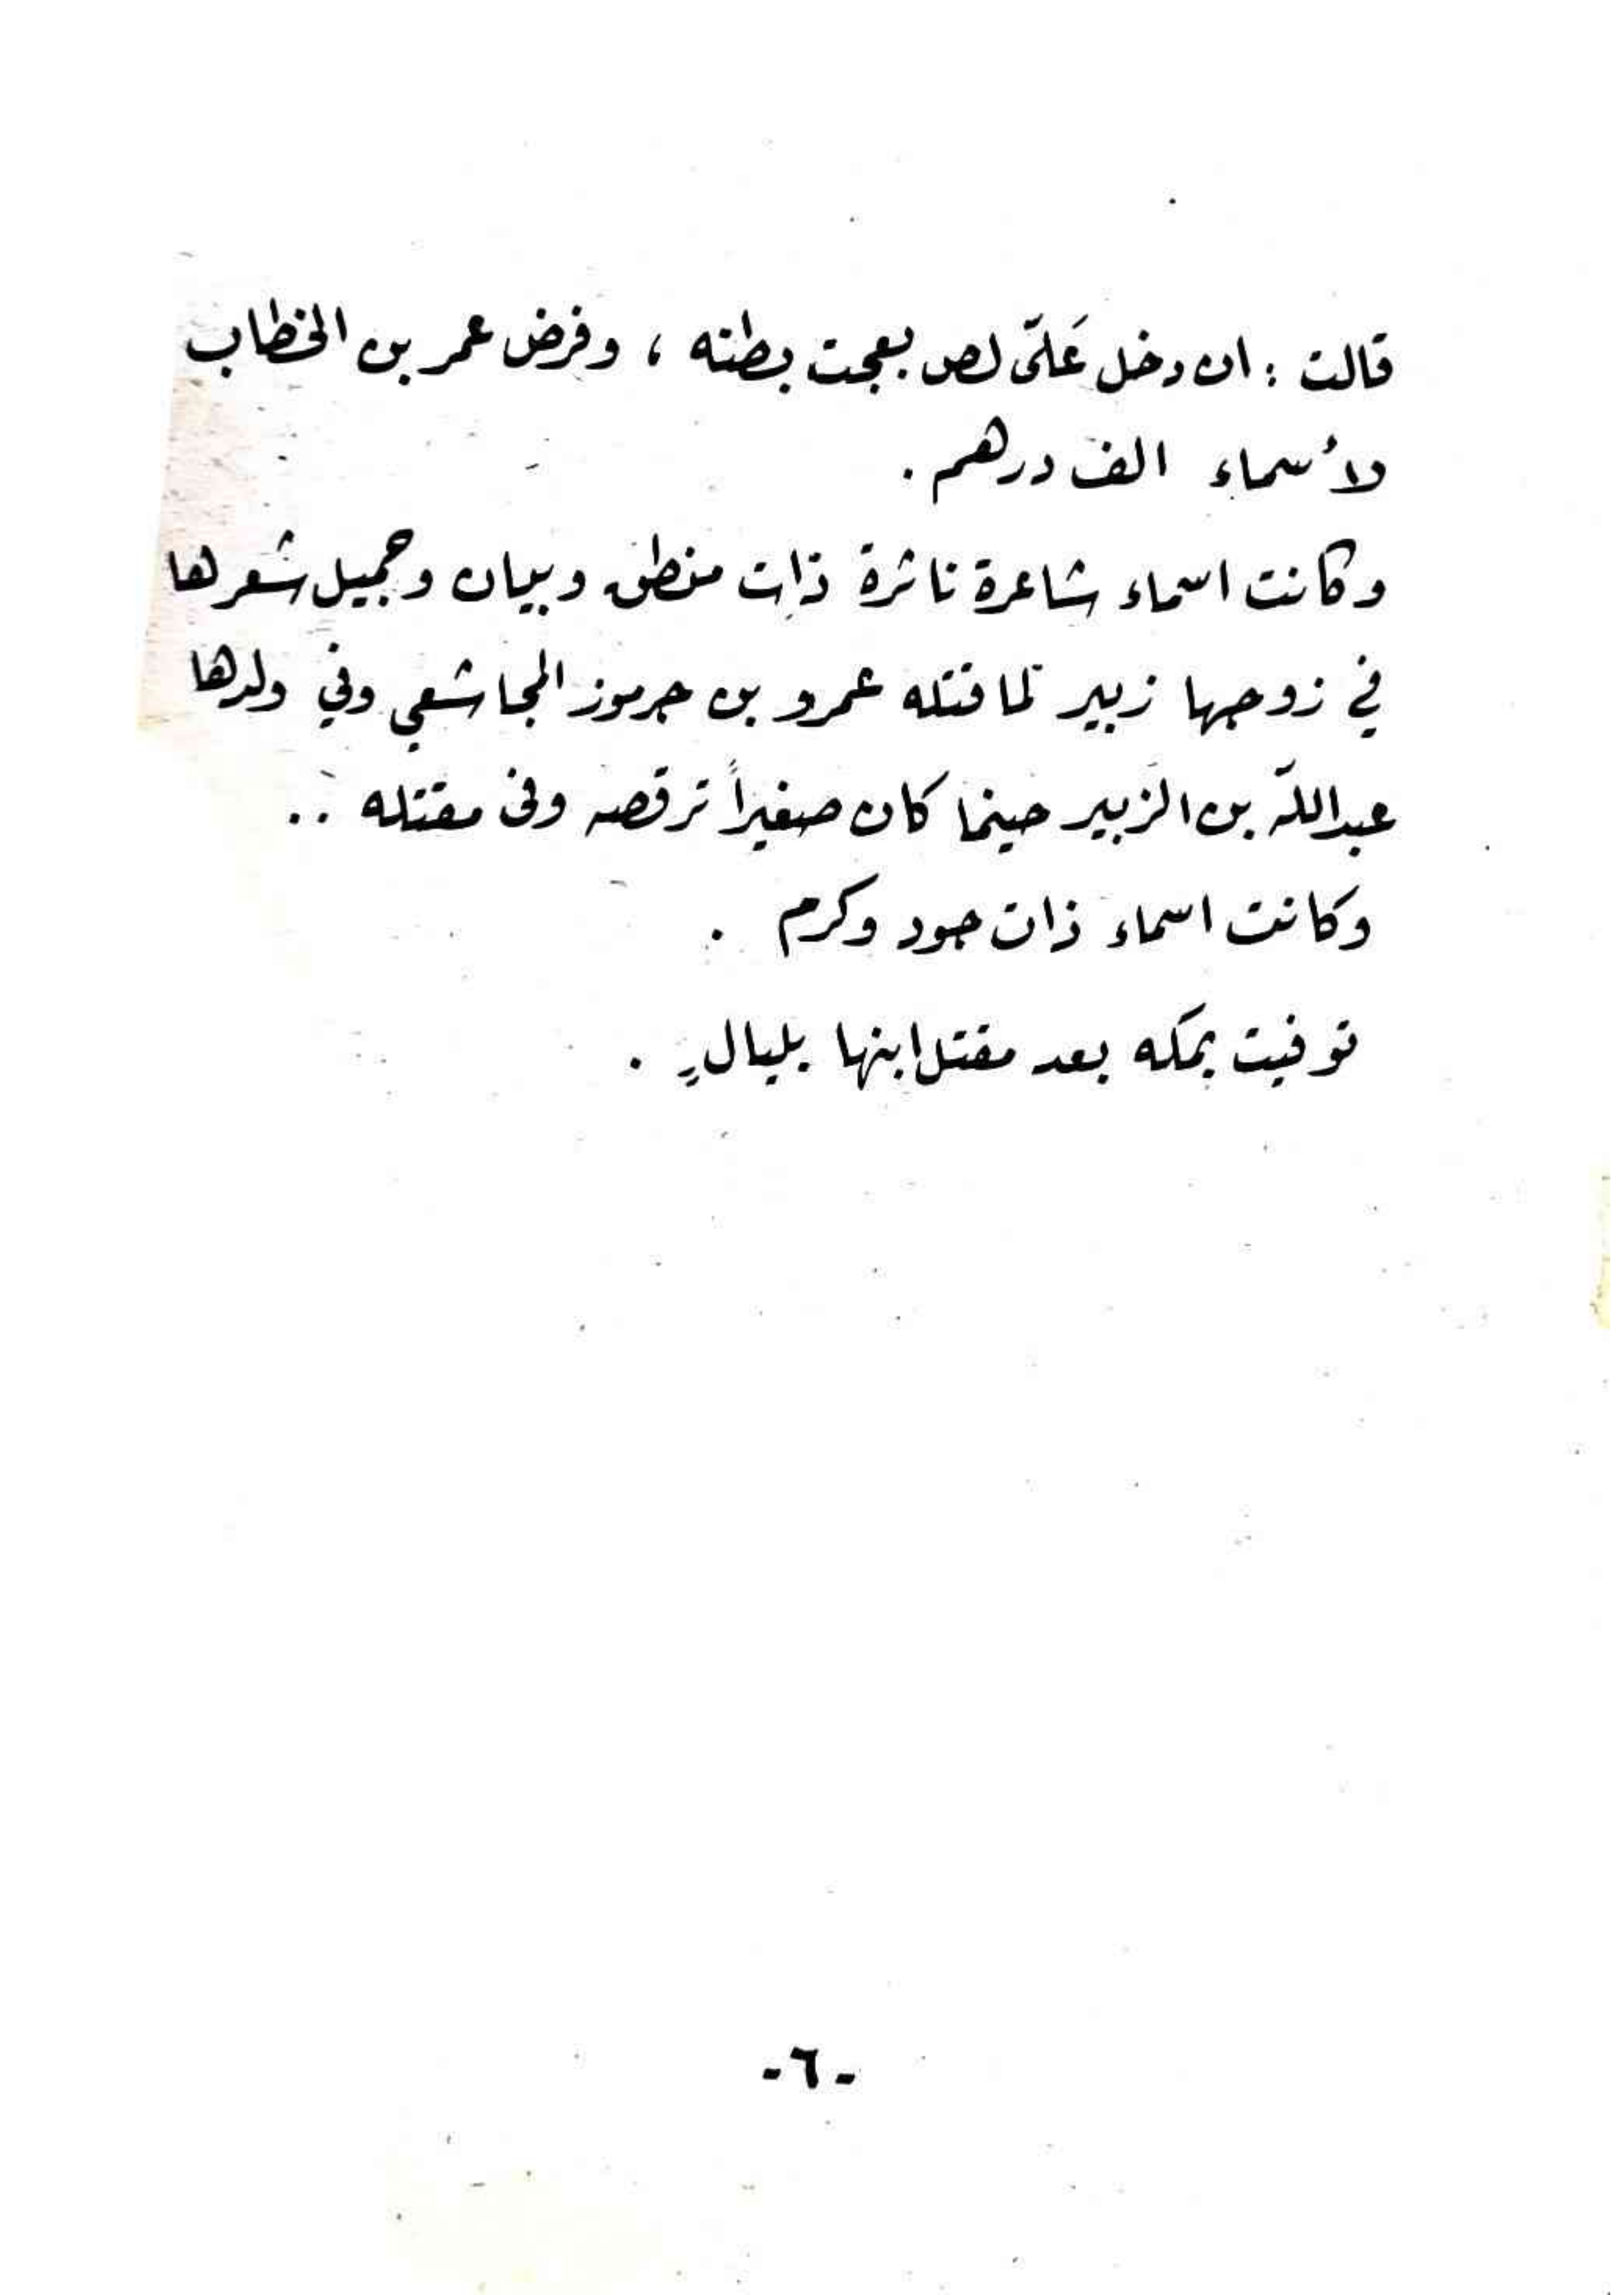 قالت : ان دخل عَليّ لص بعجت بطنه ، وفرض عمر بن الخطاب
لأسماء الف درهم .
وكانت اسماء شاعرة ناثرة ذات منطق وبيان وجميل شعرها
في زوجها زبير لما قتله عمرو بن جرموز المجاشعي وفي ولدها
عبدالله بن الزبير حينما كان صغيراً ترقصه وفي مقتله ..
وكانت اسماء ذات جود وكرم .
توفيت بمكه بعد مقتل ابنها بليالٍ .
-٦-